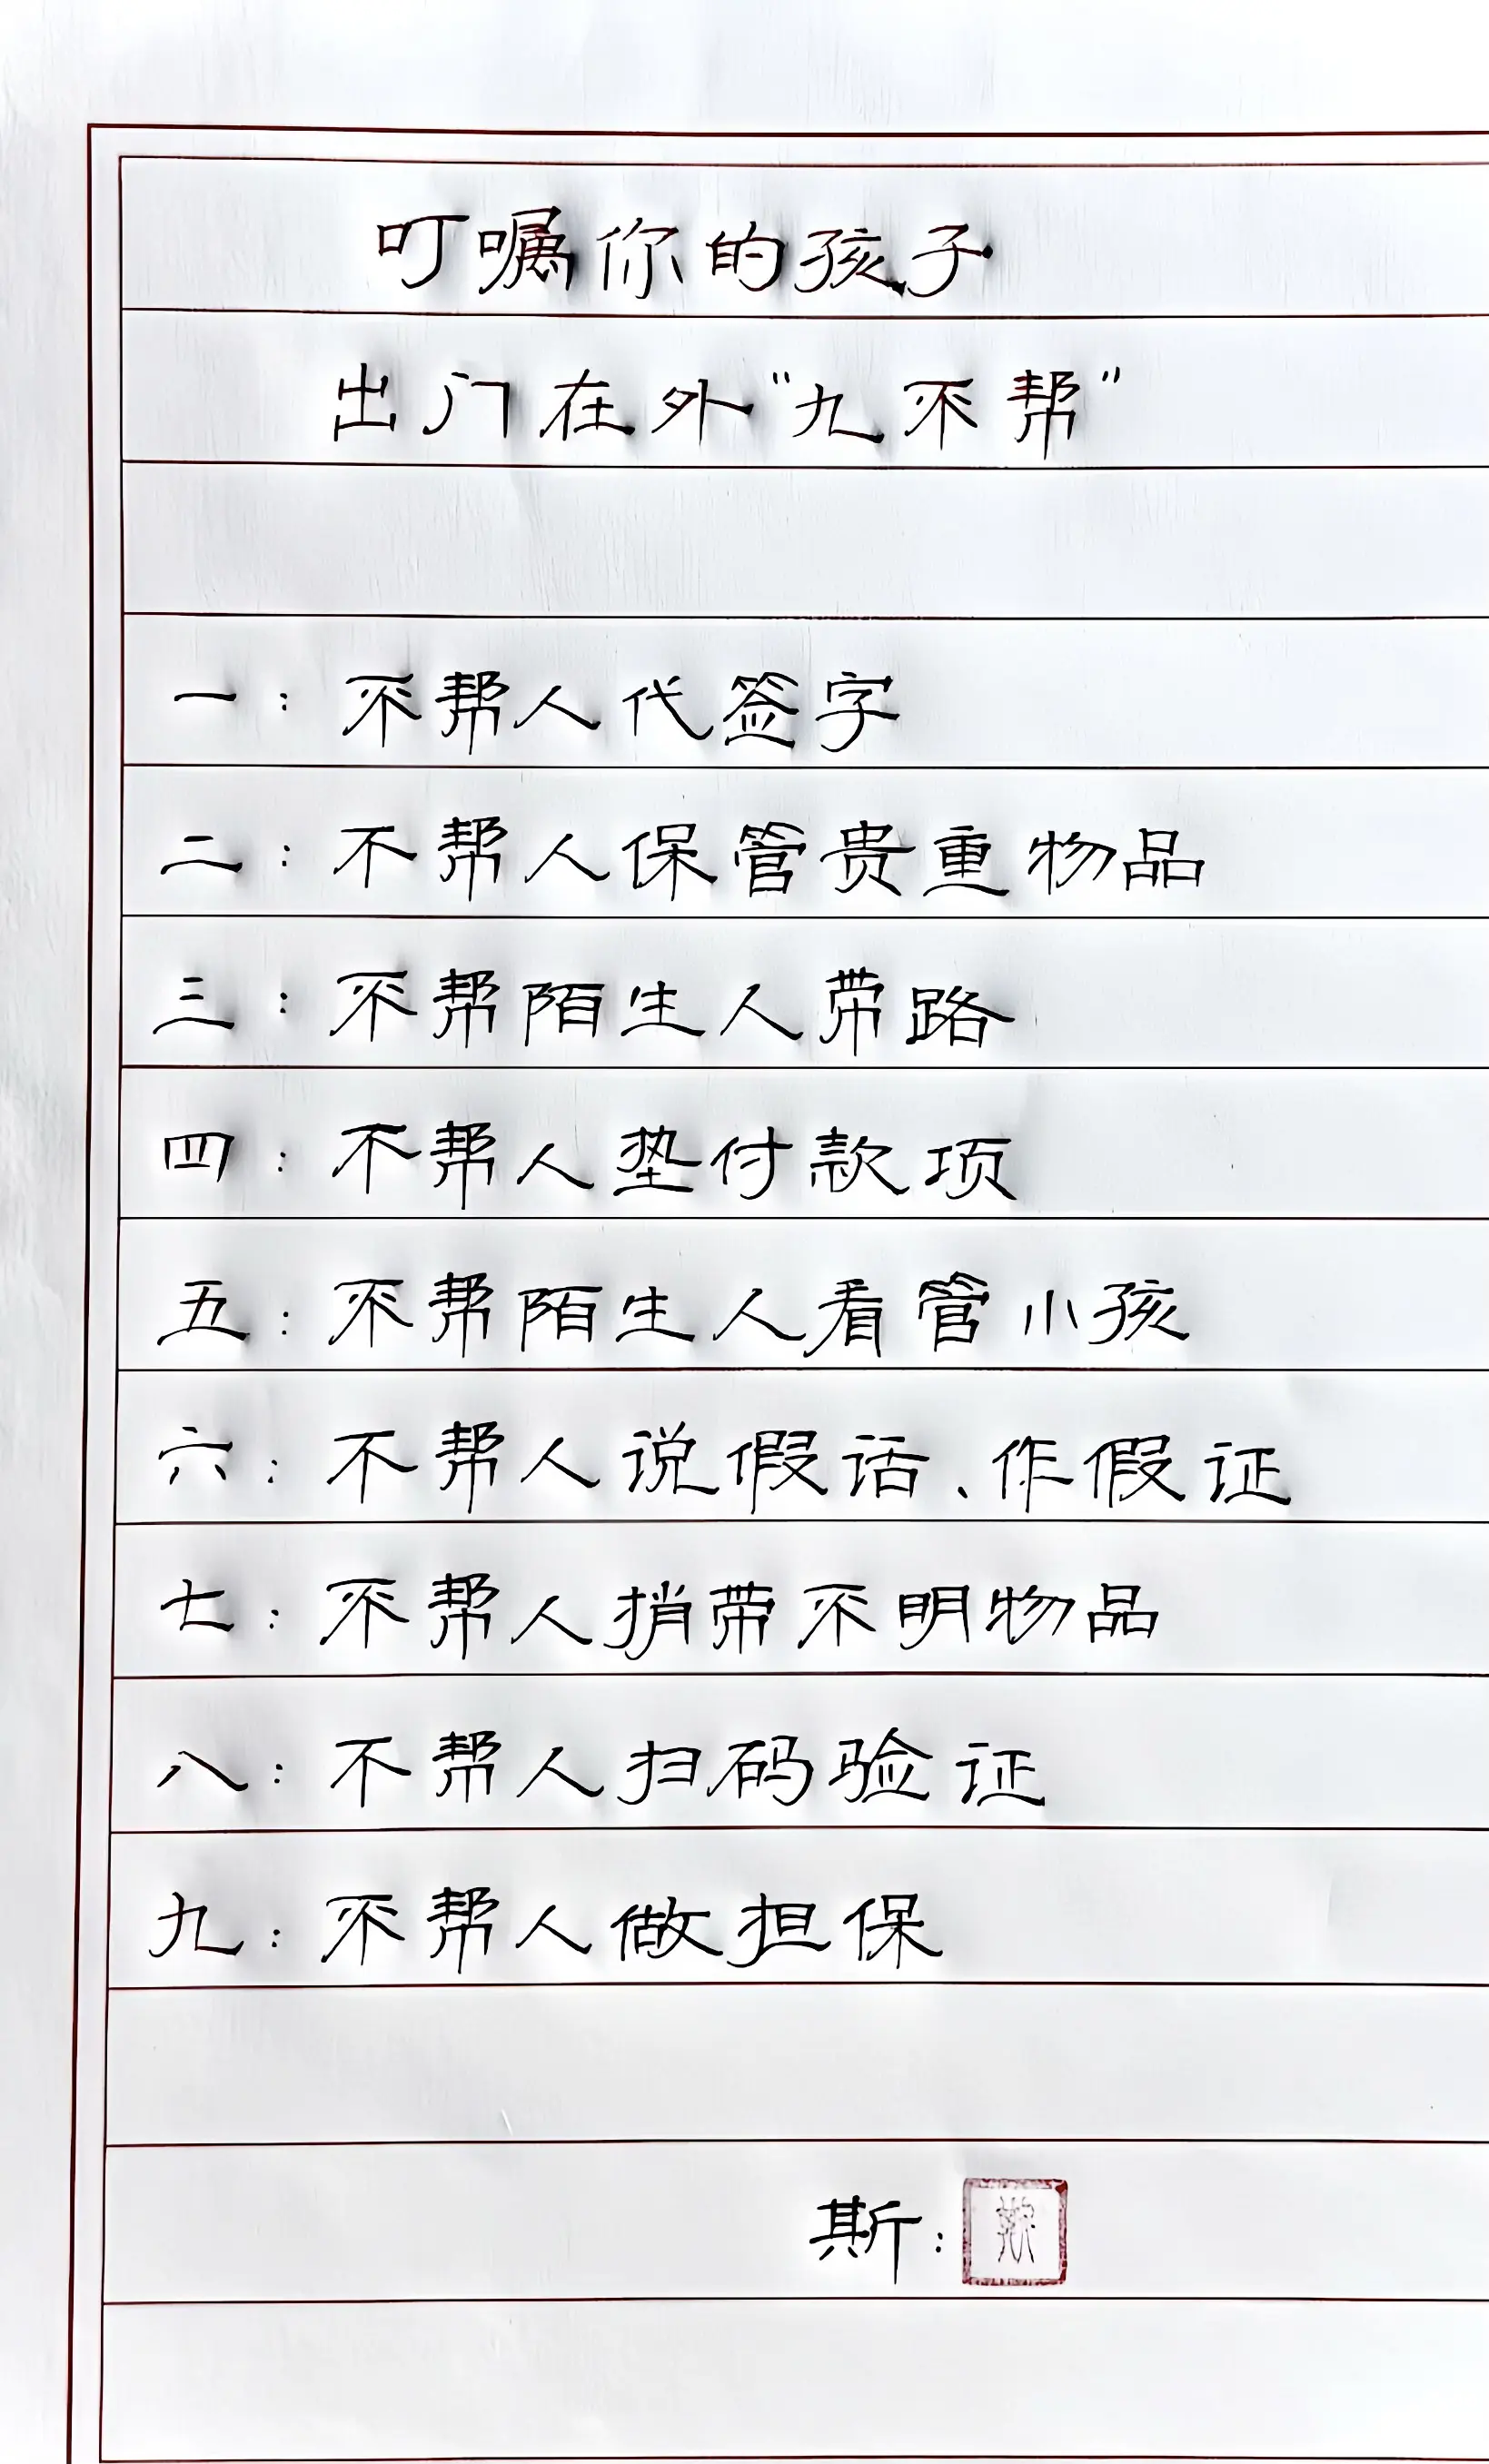 叮嘱你的孩子
出门在外“九不帮”
一：不帮人代签字
二：不帮人保管贵重物品
三：不帮陌生人带路
四：不帮人垫付款项
五：不帮陌生人看管小孩
六：不帮人说假话、作假证
七：不帮人捎带不明物品
八：不帮人扫码验证
九：不帮人做担保
斯：